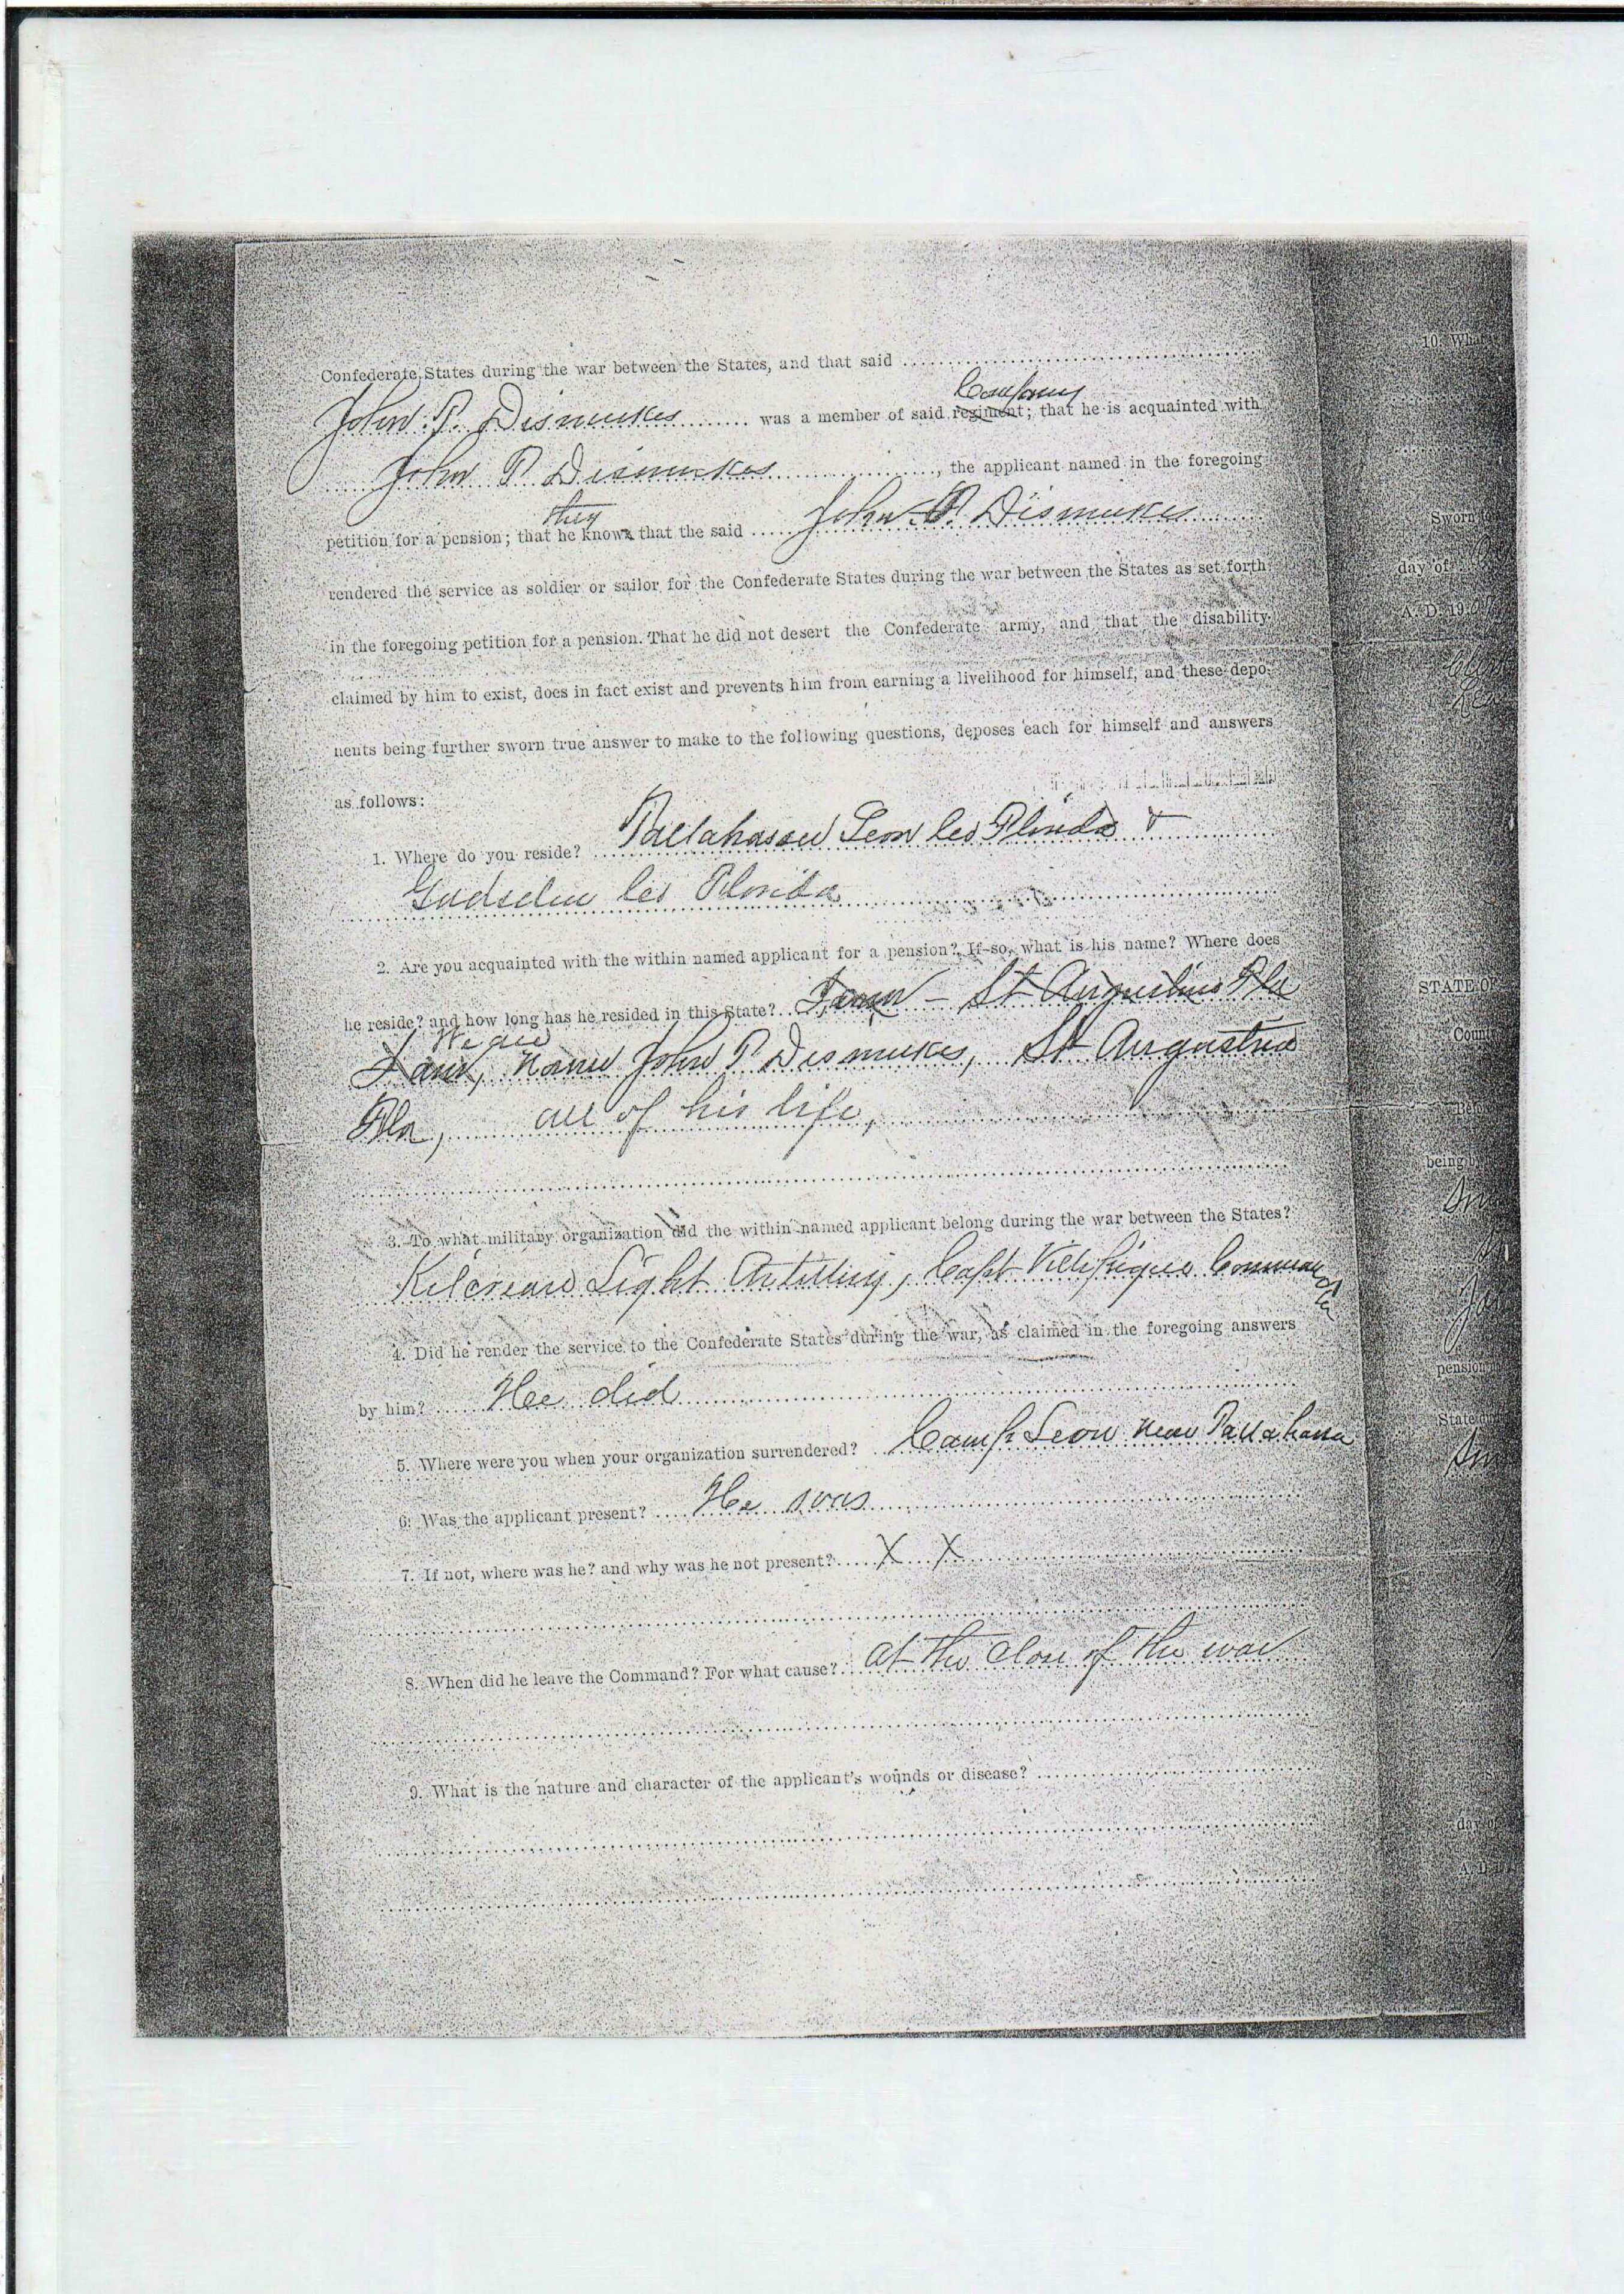 Confederate States during the war between the States, and that said
Company
John P. Dismukes was a member of said regiment; that he is acquainted with
John P Dismukes, the applicant named in the foregoing
they
petition for a pension; that he knows that the said John P. Dismukes
rendered the service as soldier or sailor for the Confederate States during the war between the States as set forth
in the foregoing petition for a pension. That he did not desert the Confederate army, and that the disability
claimed by him to exist, does in fact exist and prevents him from earning a livelihood for himself, and these depo-
nents being further sworn true answer to make to the following questions, deposes each for himself and answers
as follows:
1. Where do you reside? Tallahassee Leon Co Florida &
Gadsden Co Florida
2. Are you acquainted with the within named applicant for a pension? If so, what is his name? Where does
he reside? and how long has he resided in this State? I am - St Augustine Fla
We are
I am, name John P Dismukes, St Augustine
Fla, all of his life,
3. To what military organization did the within named applicant belong during the war between the States?
Kilcrease Light Artillery, Capt Villepigue Commanding
4. Did he render the service to the Confederate States during the war, as claimed in the foregoing answers
by him? He did
5. Where were you when your organization surrendered? Camp Leon near Tallahassee
6. Was the applicant present? He was
7. If not, where was he? and why was he not present? X X
8. When did he leave the Command? For what cause? At the close of the war
9. What is the nature and character of the applicant's wounds or disease?
10. What
Sworn to
day of
A. D. 1907
STATE OF
County
being
pension
State
day of
A. D.